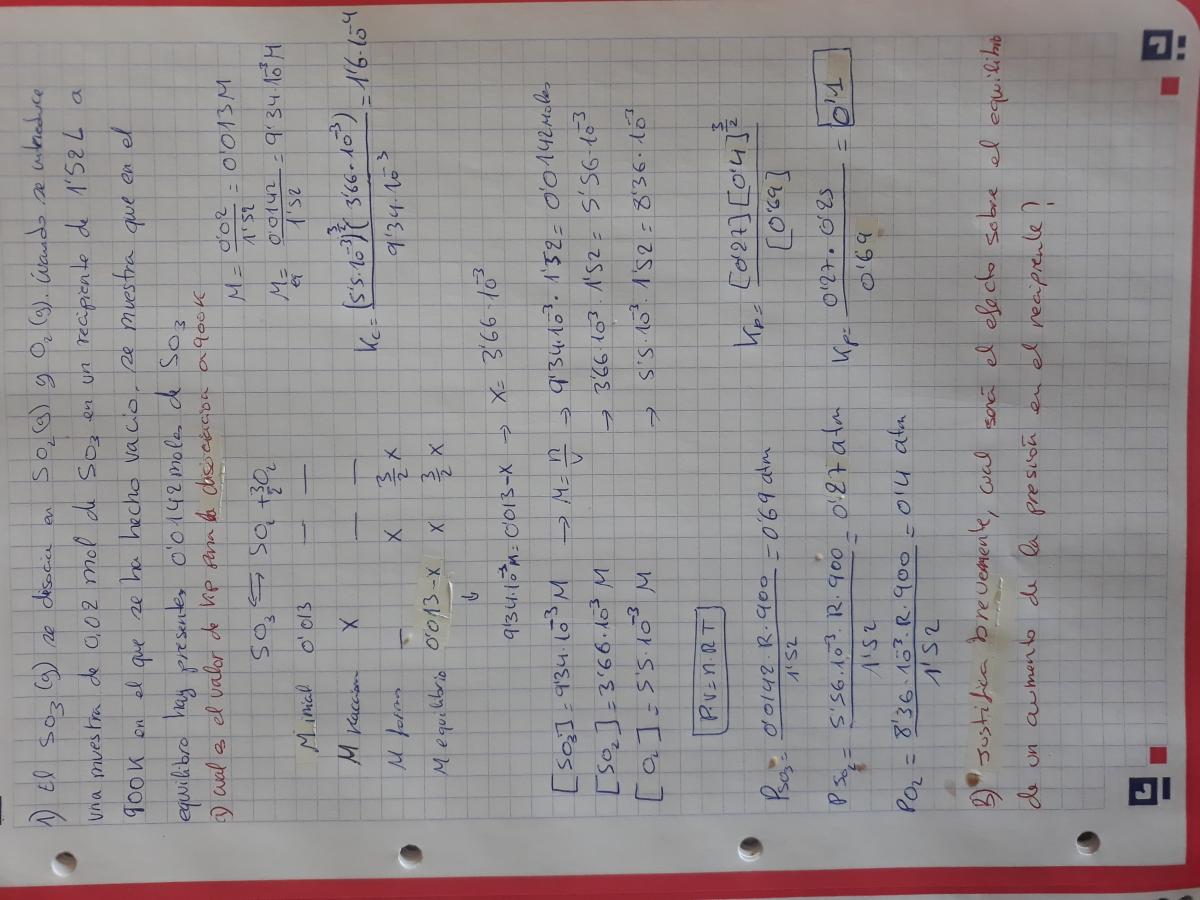 1) El SO3 (g) se disocia en SO2(g) y O2(g). Cuando se introduce
una muestra de 0,02 mol de SO3 en un recipiente de 1'52 L a
900K en el que se ha hecho vacio, se muestra que en el
equilibro hay presentes 0'0142 moles de SO3
a) cual es el valor de Kp para la disociacion a 900K
SO3 ⇆ SO2 + 3/2 O2
M inicial 0'013 — —
M reaccion x — —
M forma — x 3/2 x
M equilibrio 0'013-x x 3/2 x
M = 0'02/1'52 = 0'013 M
M eq = 0'0142/1'52 = 9'34·10^-3 M
Kc = (5'5·10^-3)^3/2 (3'66·10^-3) / 9'34·10^-3 = 1'6·10^-4
↓
9'34·10^-3 M = 0'013-x → x = 3'66·10^-3
[SO3] = 9'34·10^-3 M → M = n/V → 9'34·10^-3 · 1'52 = 0'0142 moles
[SO2] = 3'66·10^-3 M → 3'66·10^-3 · 1'52 = 5'56·10^-3
[O2] = 5'5·10^-3 M → 5'5·10^-3 · 1'52 = 8'36·10^-3
P.V = n.R.T
PSO3 = 0'0142·R·900 / 1'52 = 0'69 atm
PSO2 = 5'56·10^-3·R·900 / 1'52 = 0'27 atm
PO2 = 8'36·10^-3·R·900 / 1'52 = 0'4 atm
Kp = [0'27][0'4]^3/2 / [0'69]
Kp = 0'27·0'25 / 0'69 = 0'1
B) Justifica brevemente, cual será el efecto sobre el equilibrio
de un aumento de la presión en el recipiente?